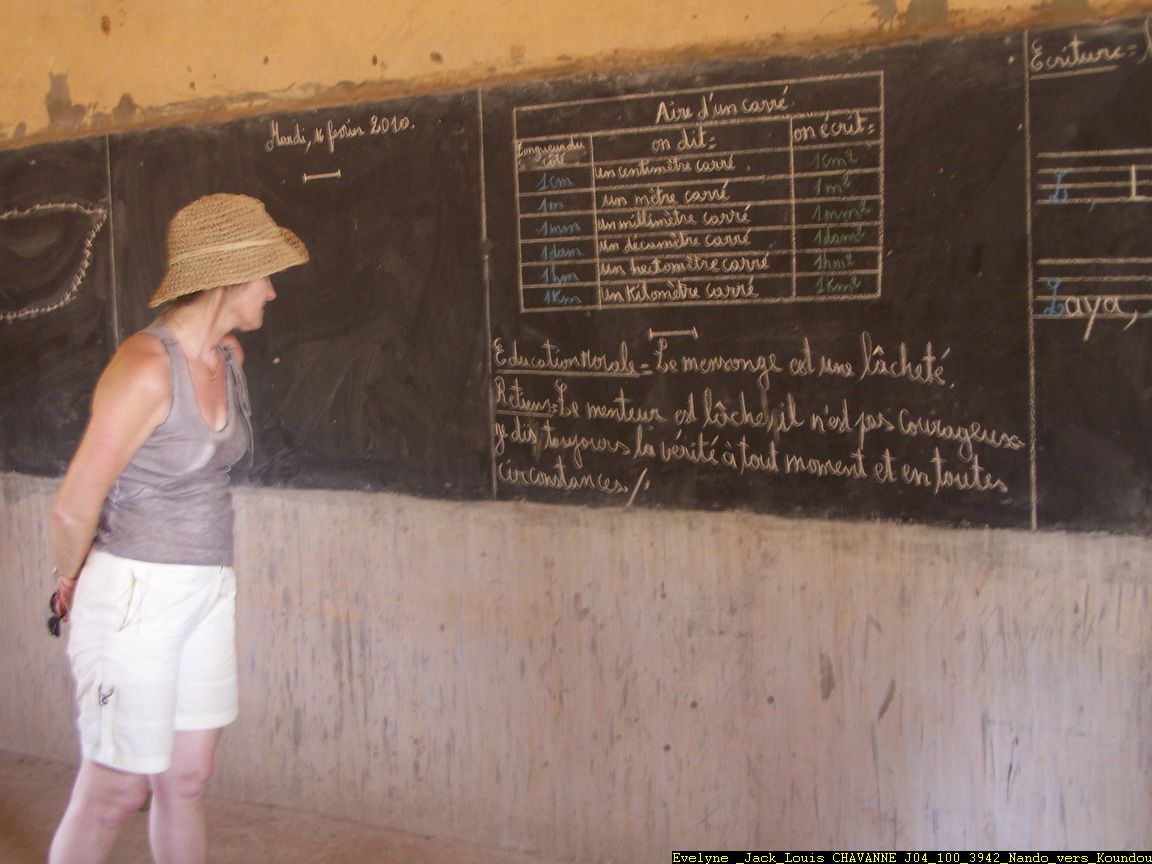 Mardi, 16 février 2010.
Aire d'un carré
Longueur du côté on dit= on écrit=
1cm un centimètre carré. 1cm²
1m un mètre carré 1m²
1mm un millimètre carré 1mm²
1dam un décamètre carré 1dam²
1hm un hectomètre carré 1hm²
1Km un Kilomètre carré 1Km²
Education Morale= Le mensonge est une lâcheté.
Retiens=Le menteur est lâche, il n'est pas courageux
je dis toujours la vérité à tout moment et en toutes
circonstances./.
Ecriture=
L, L
Laya,
Evelyne _Jack_Louis CHAVANNE J04_100_3942_Nando_vers_Koundou